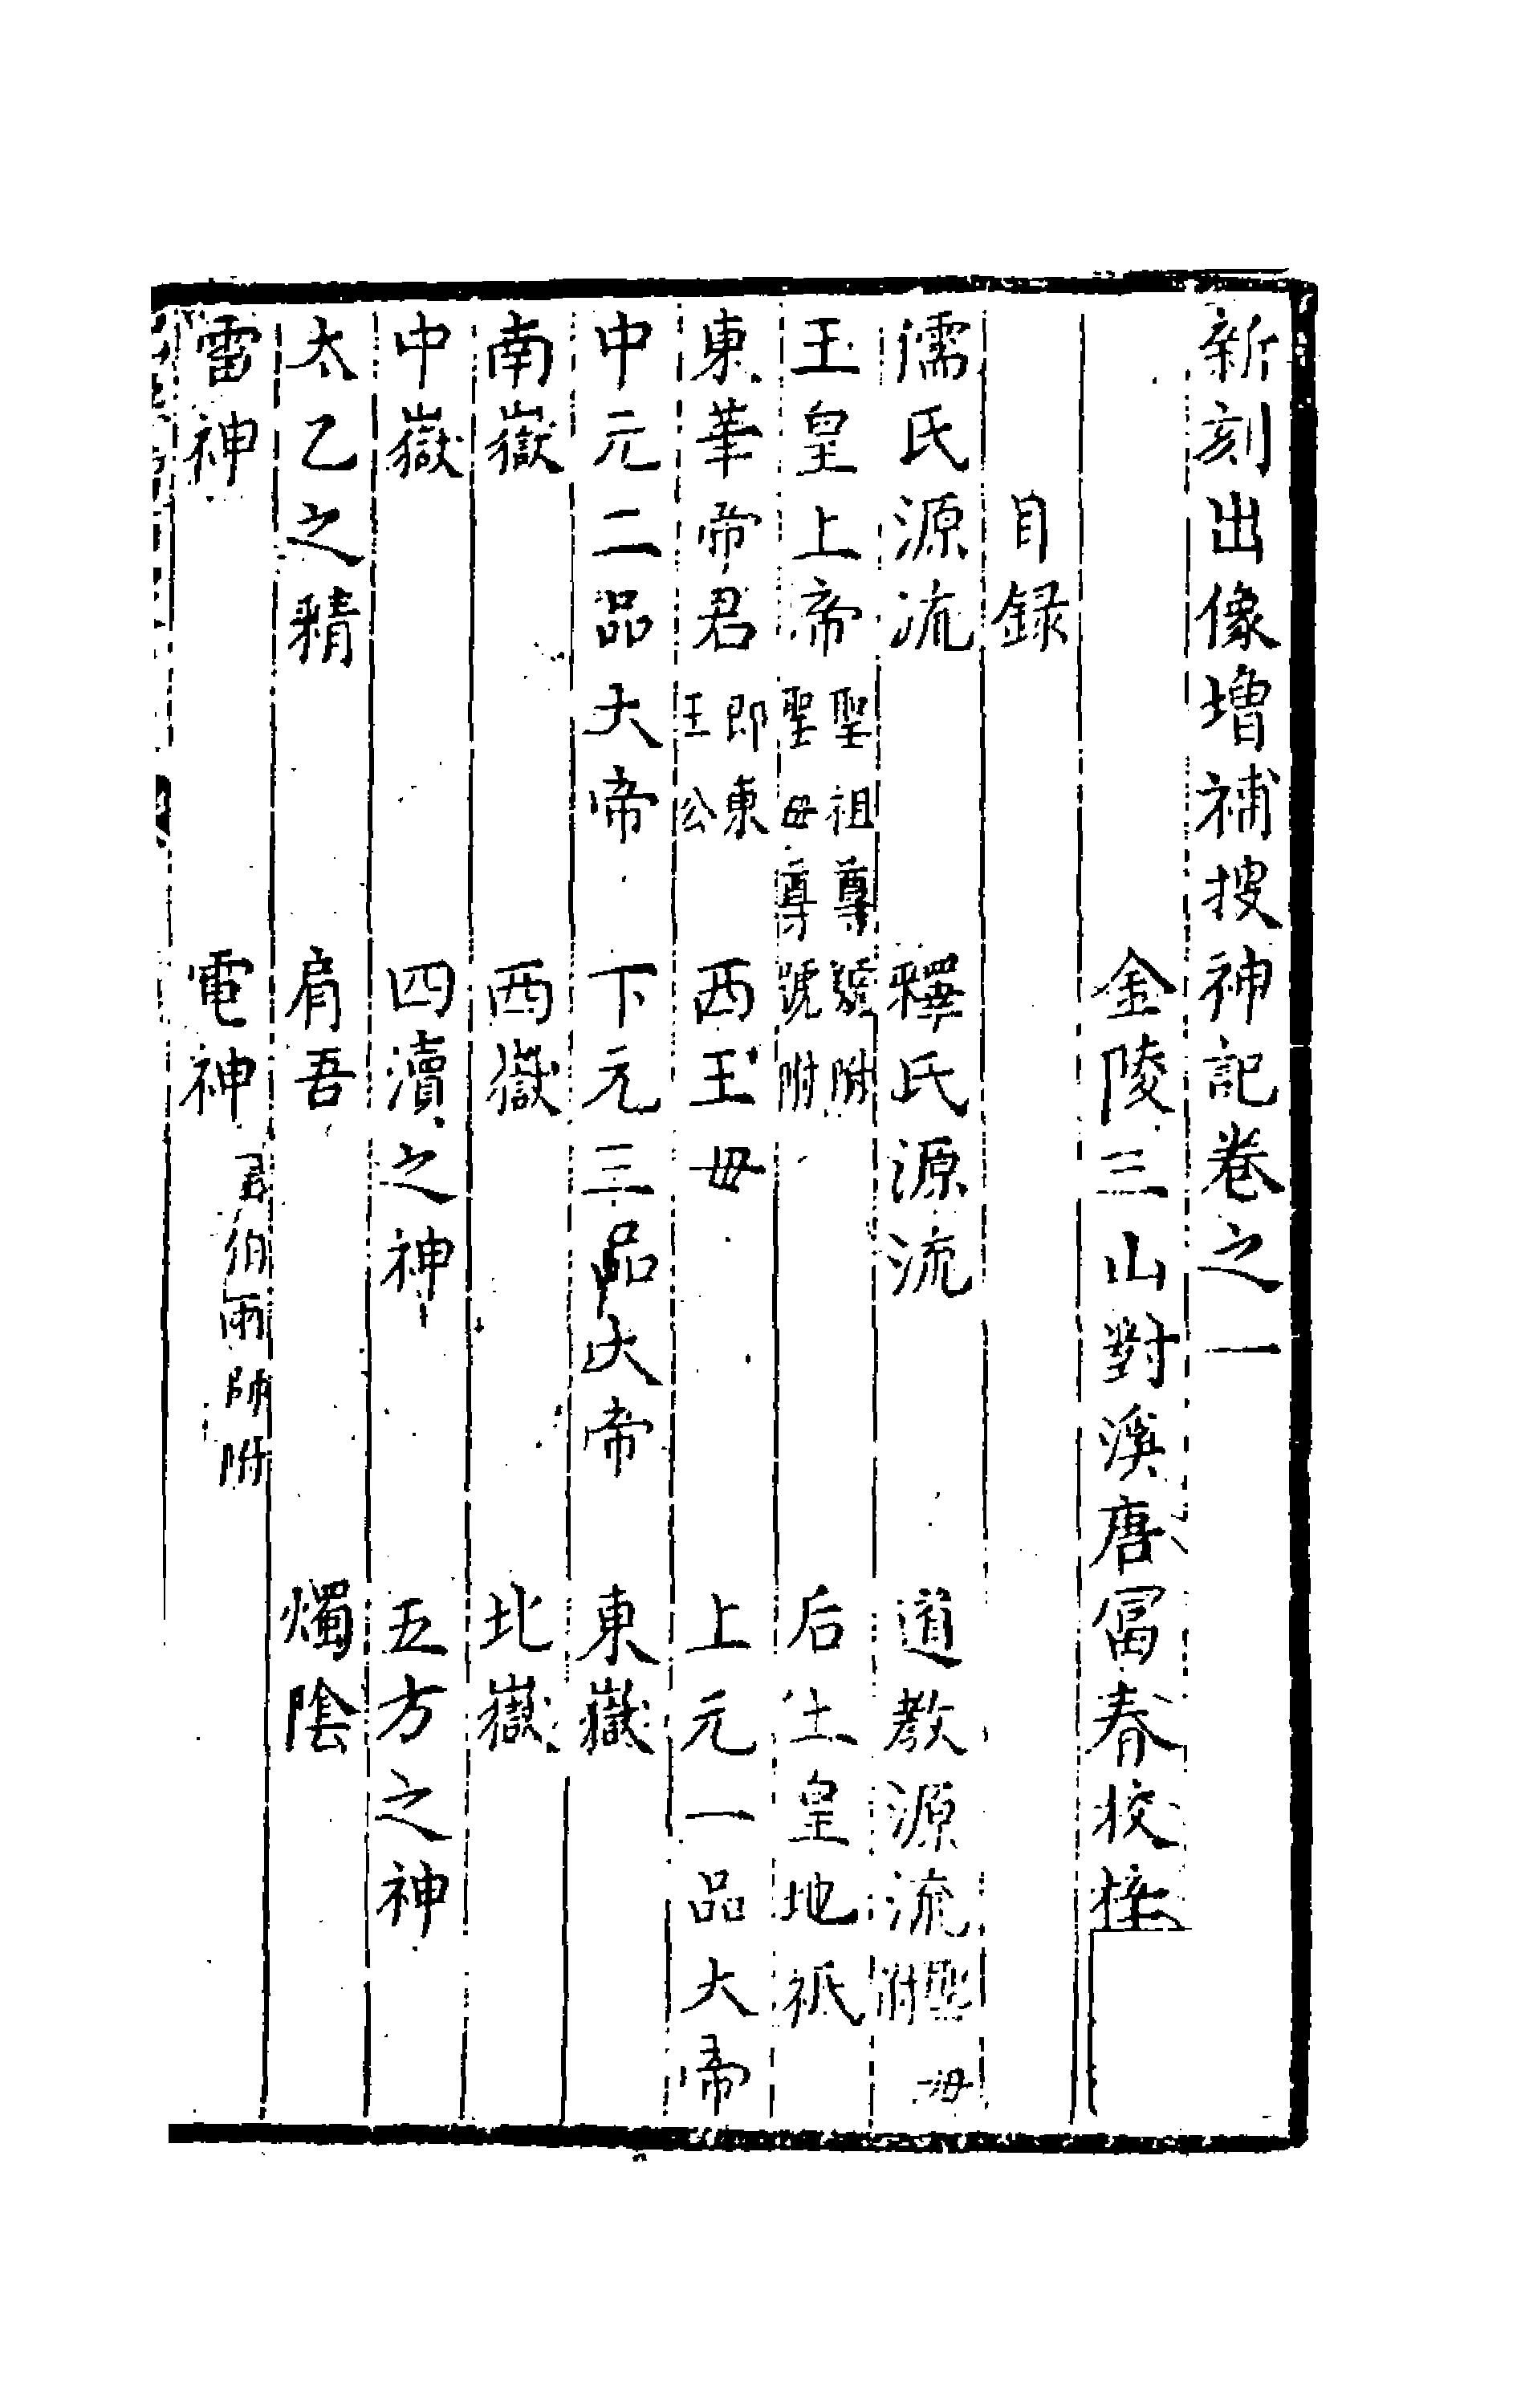 新刻出像增補搜神記卷之一
金陵三山對溪唐冨春校梓
目録
儒氏源流 釋氏源流 道教源流聖母附
玉皇上帝聖祖尊號附聖母尊號附 后土皇地祇
東華帝君即東王公 西王母 上元一品大帝
中元二品大帝 下元三品大帝 東嶽
南嶽 西嶽 北嶽
中嶽 四瀆之神 五方之神
太乙之精 肩吾 燭陰
雷神 電神風伯雨師附